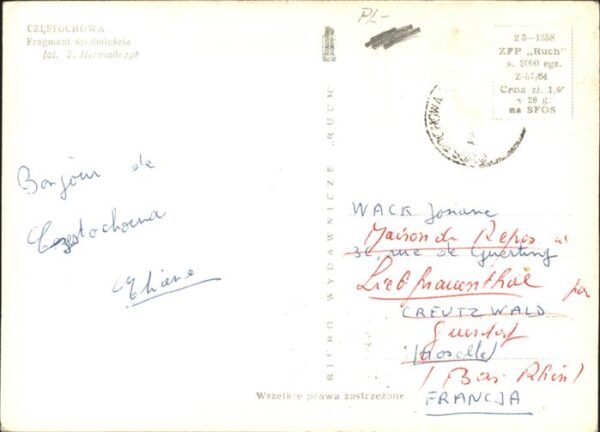 CZĘSTOCHOWA
Fragment śródmieścia
fot. T. Hermańczyk
PL-
23-1358
ZFP „Ruch"
s. 2000 egz.
Cena zł. 1,40
+ 20 g.
na SFOS
BIURO WYDAWNICZE „RUCH"
Bonjour de
Częstochowa
Eliane
WACK Josiane
Maison de Repos
rue de Guerting
Liebfrauenthal par
CREUTZWALD
Goersdorf
(Moselle)
(Bas-Rhin)
FRANCJA
Wszelkie prawa zastrzeżone